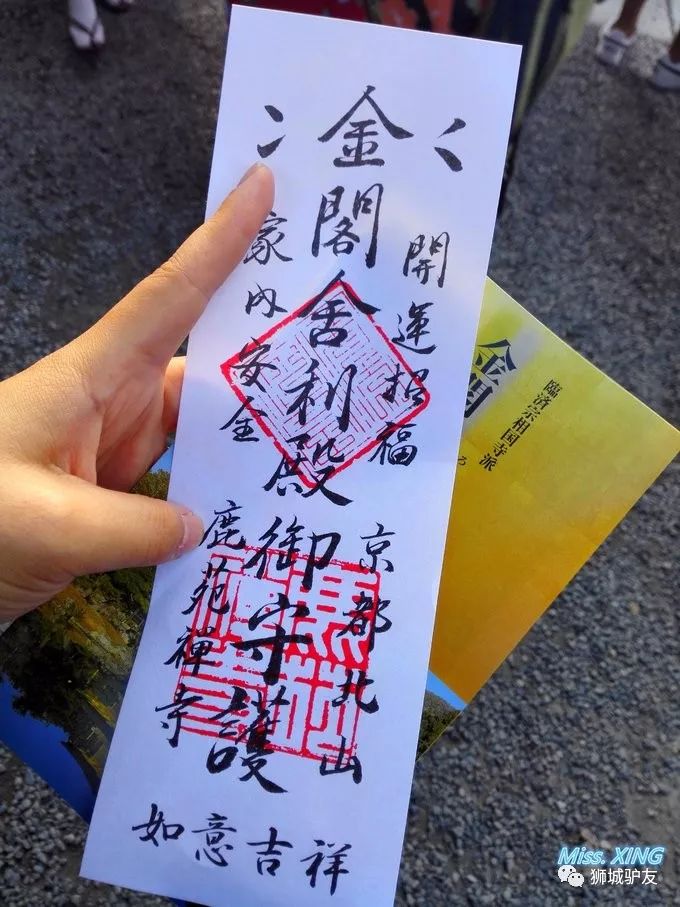 金閣舎利殿御守護
開運招福
家内安全
京都北山
鹿苑禅寺
如意吉祥
臨済宗相国寺派
金閣
Miss. XING
狮城驴友